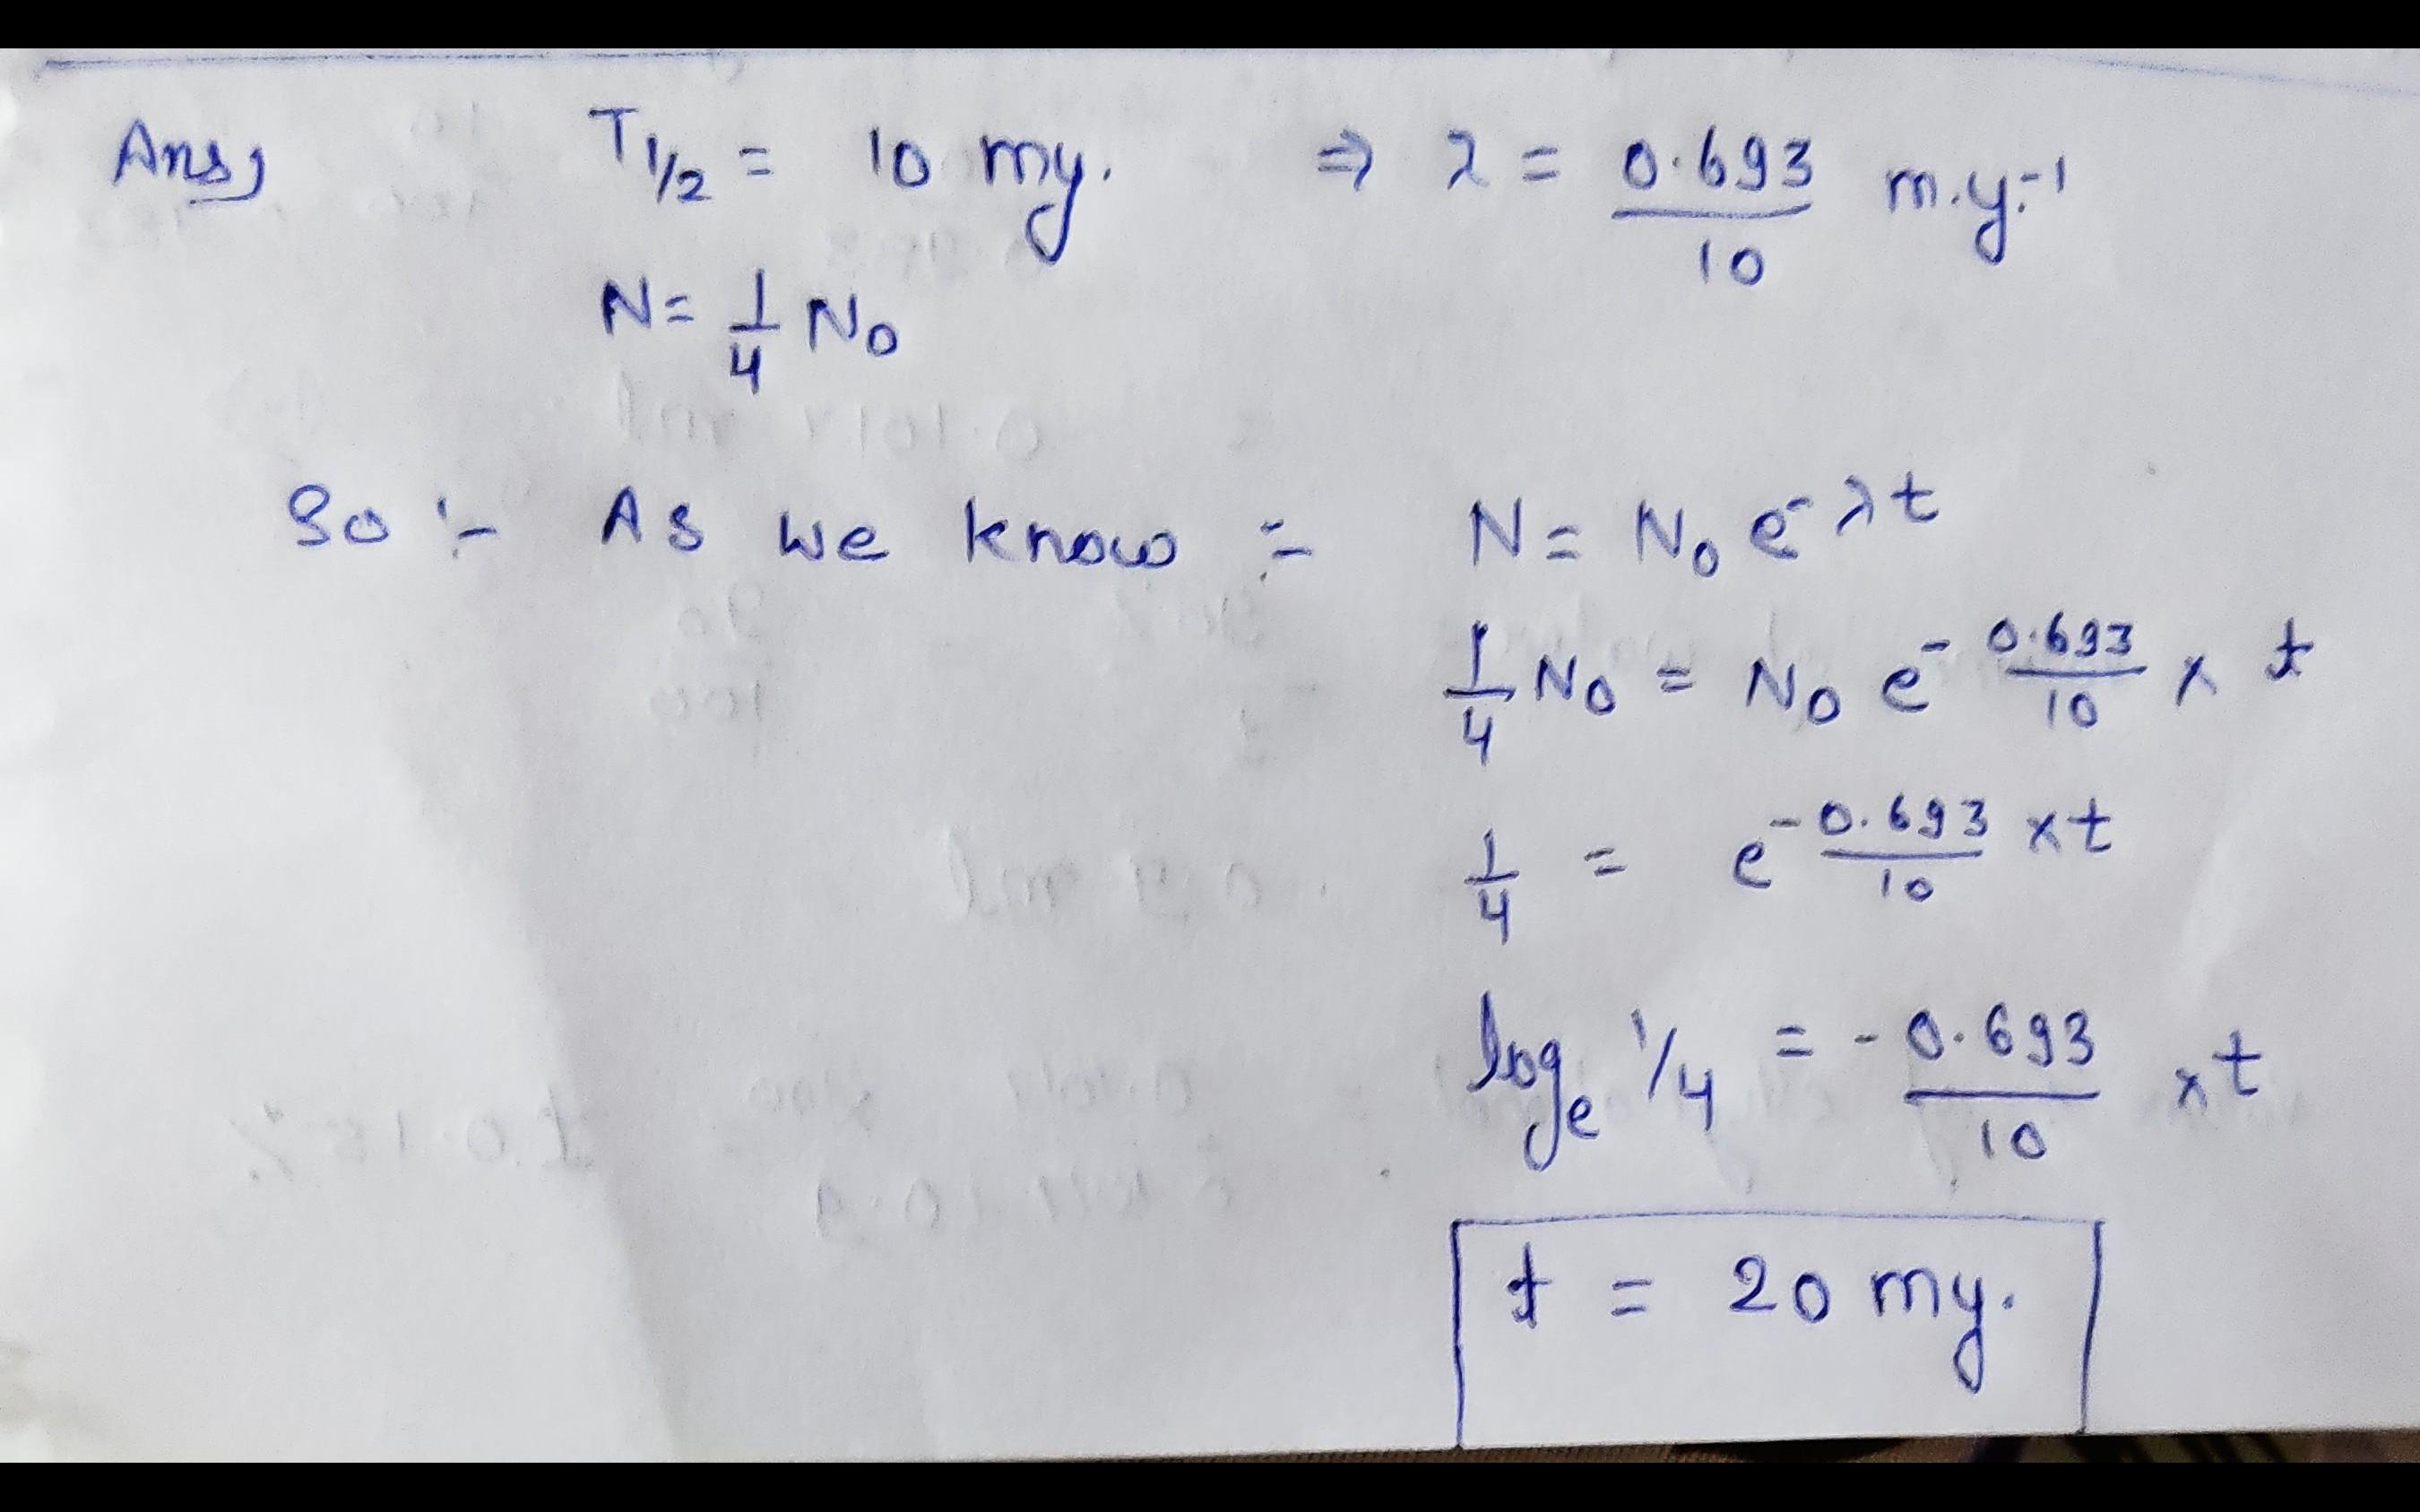 Ans, T1/2 = 10 my. ⇒ λ = 0.693/10 m.y.⁻¹
N = 1/4 N₀
So :- As we know :- N = N₀ e⁻λt
1/4 N₀ = N₀ e⁻ 0.693/10 × t
1/4 = e⁻0.693/10 ×t
logₑ 1/4 = - 0.693/10 ×t
t = 20 my.